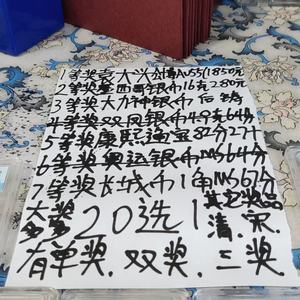 1等奖袁大头公博AU55 1850元
2等奖第四哥银币16克280元
3等奖大力神银币后铸
4等奖双凤银币49克64分
5等奖康熙通宝82分27干
6等奖奥运银币MS64分
7等奖长城币1角MS67分
大奖多多20选1其它奖品清.宋
有单奖.双奖.三奖